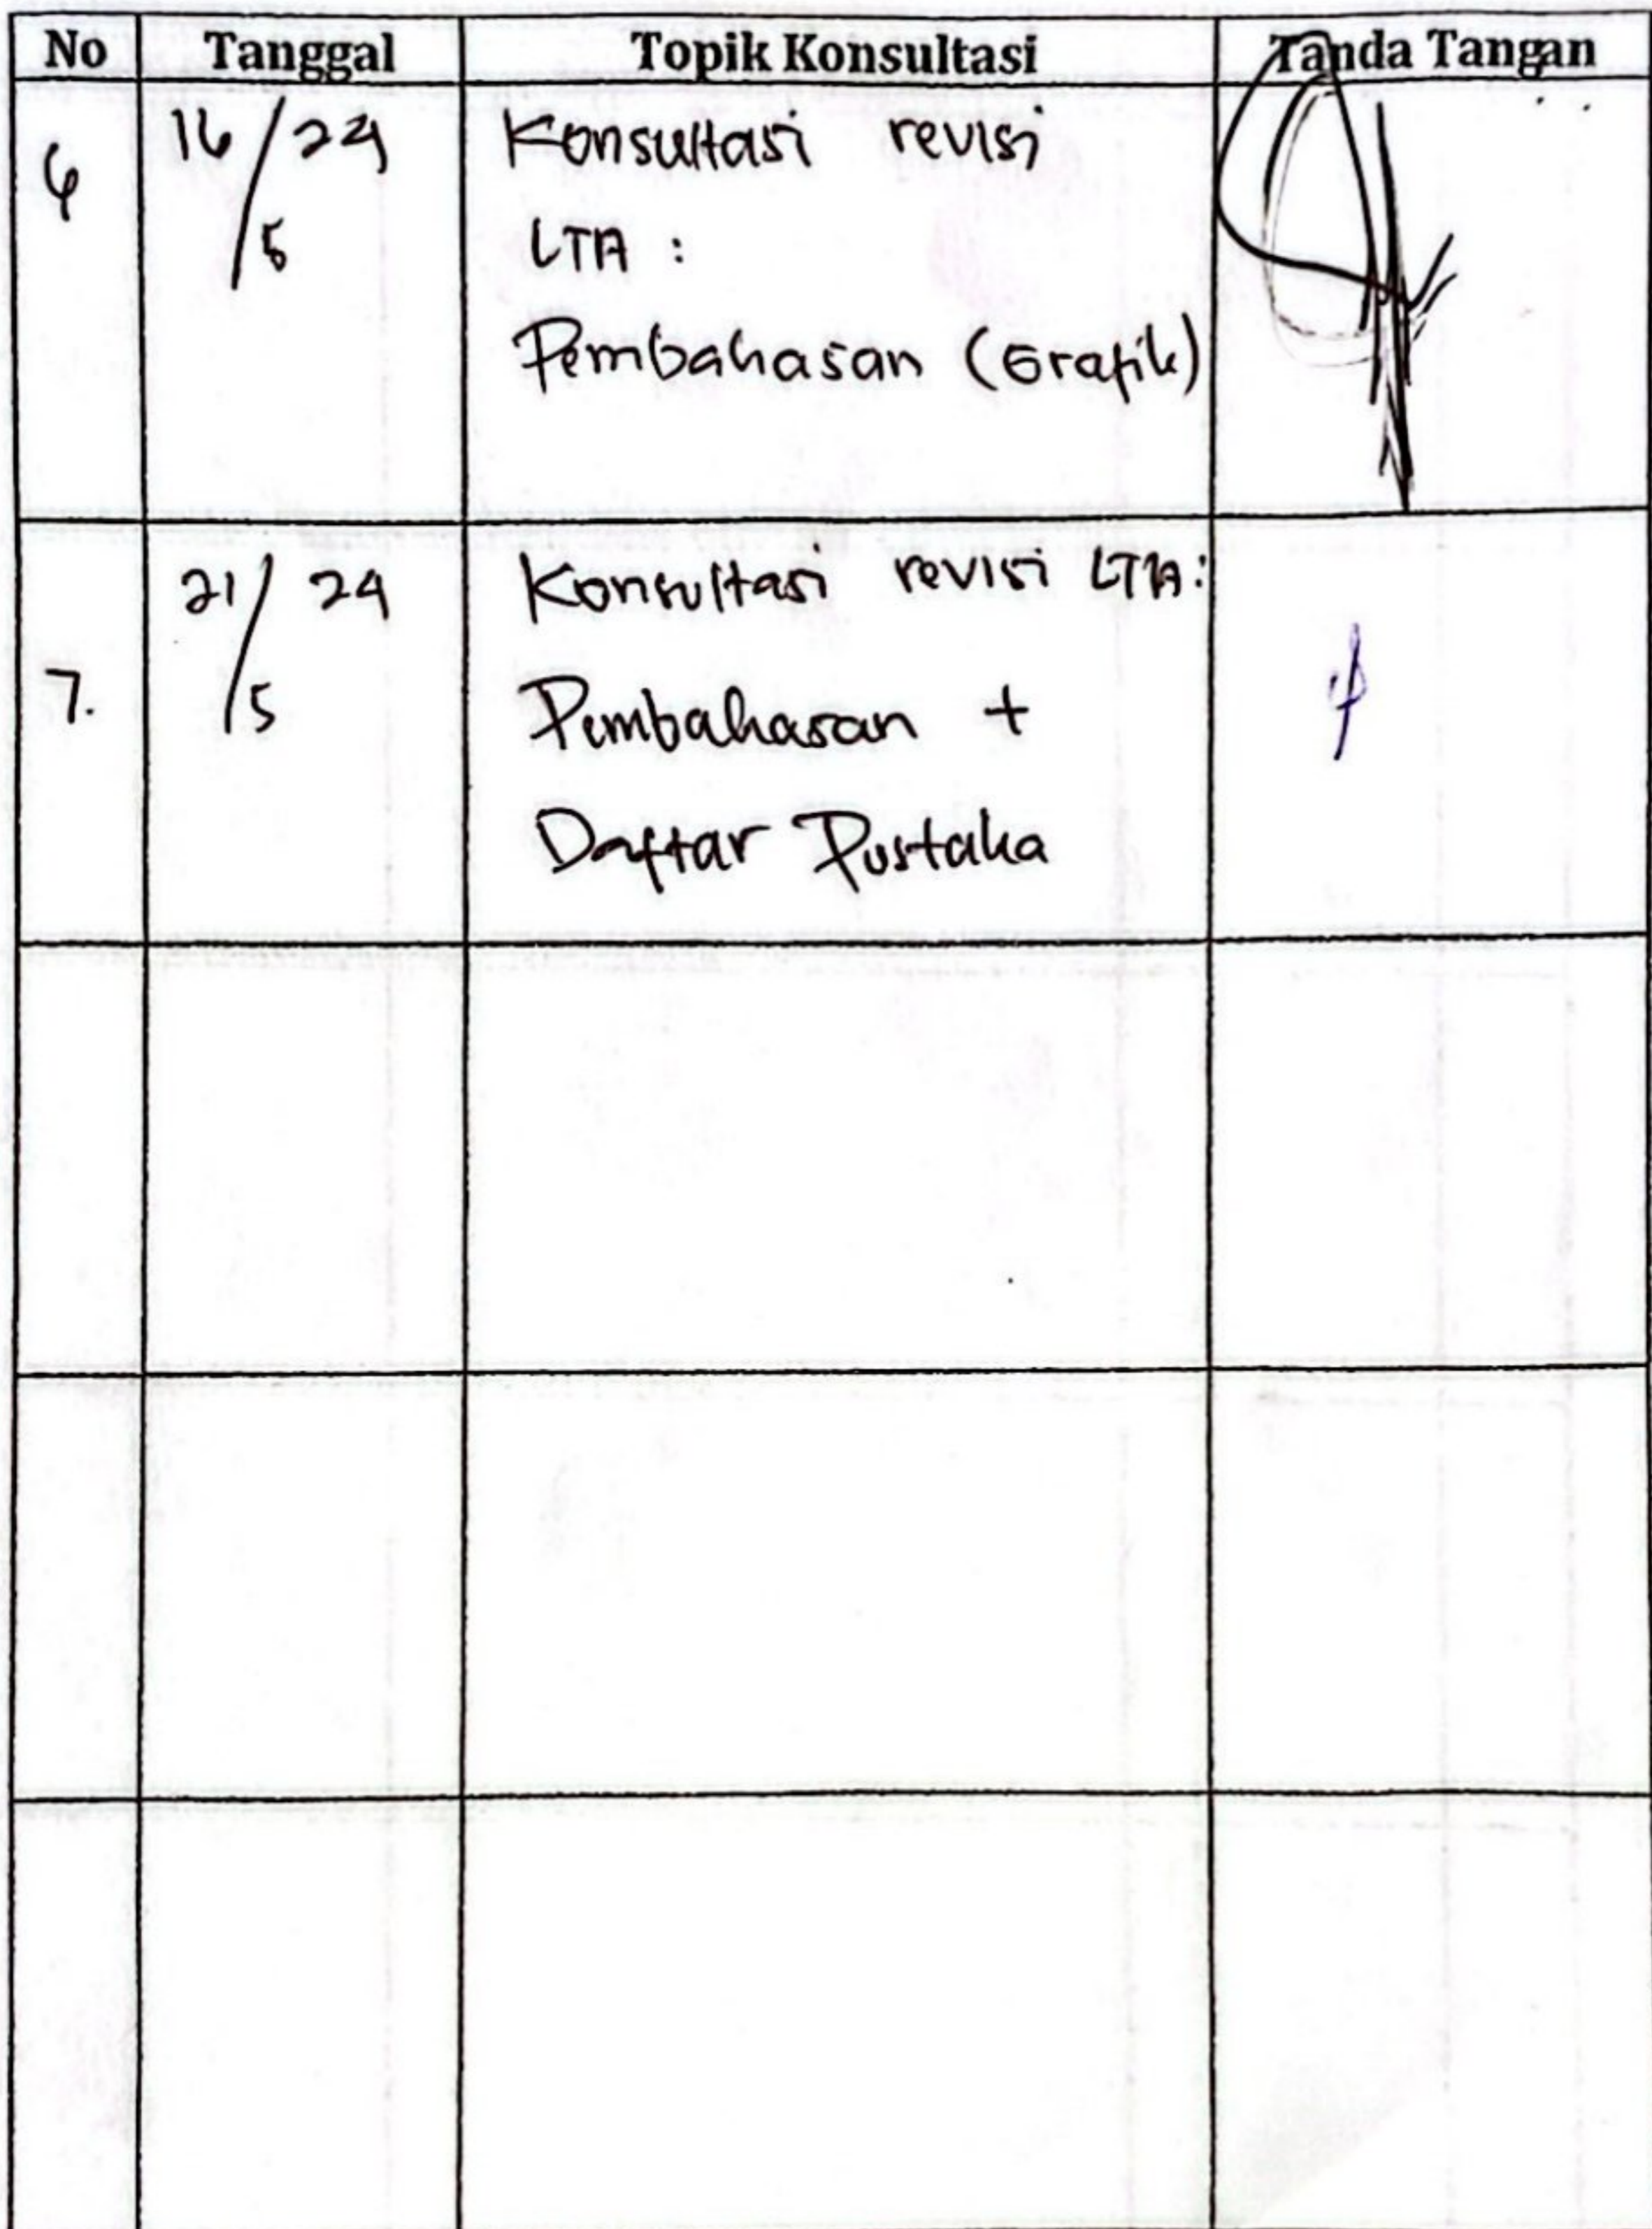 No Tanggal Topik Konsultasi Tanda Tangan
6 16/5 24 Konsultasi revisi
LTA :
Pembahasan (Grafik)
7. 21/5 24 Konsultasi revisi LTA:
Pembahasan +
Daftar Pustaka